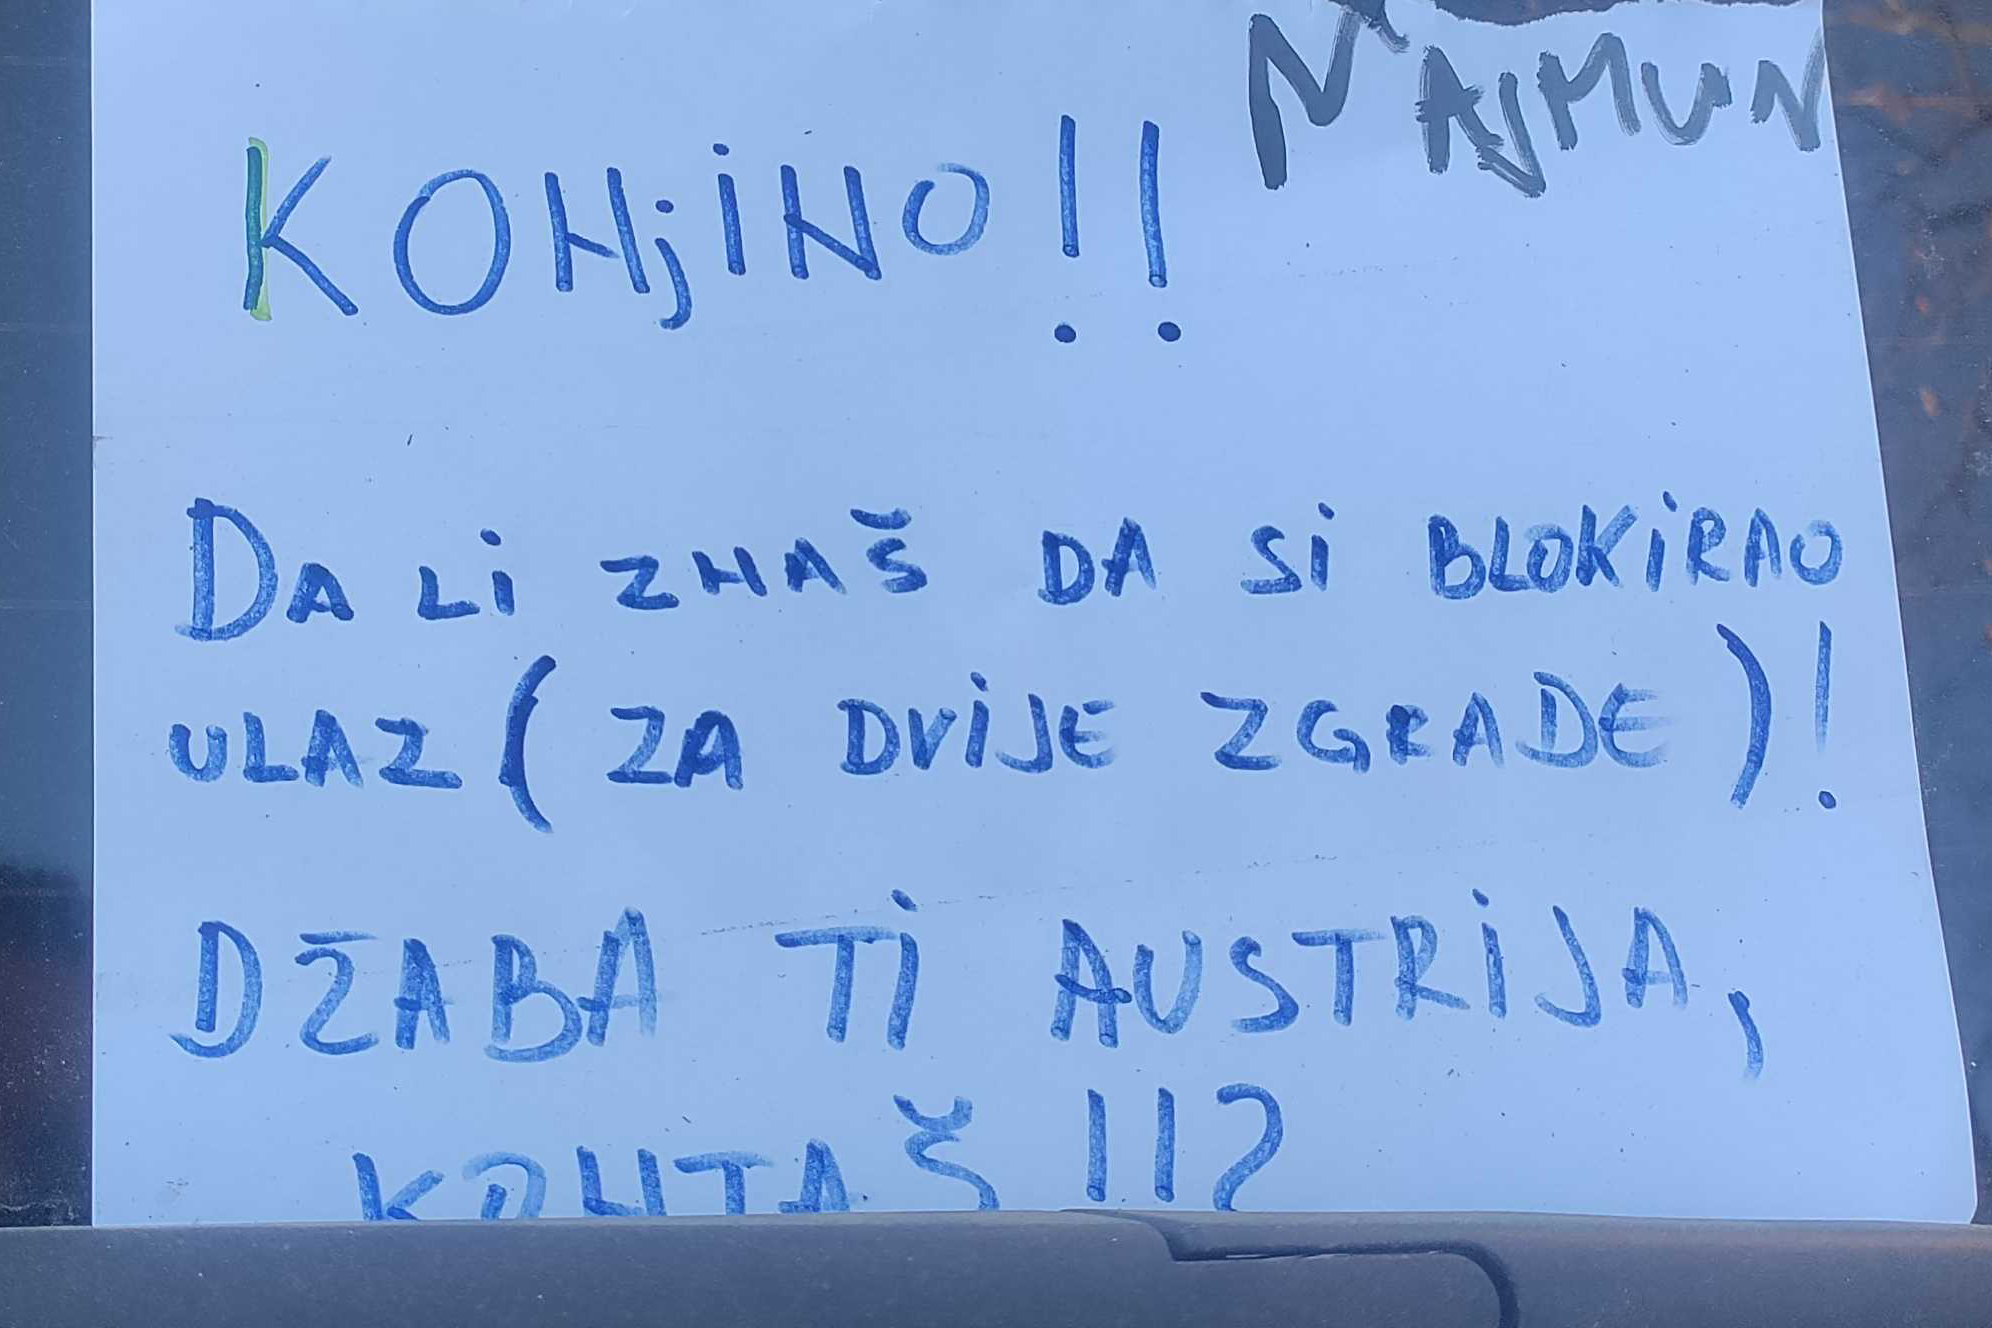 NAJMUN
KONjiNO!!
DA Li ZNAŠ DA Si BLOKiRAO
ULAZ (ZA DViJE ZGRADE)!
DŽABA Ti AUSTRiJA,
KONTAŠ!!?